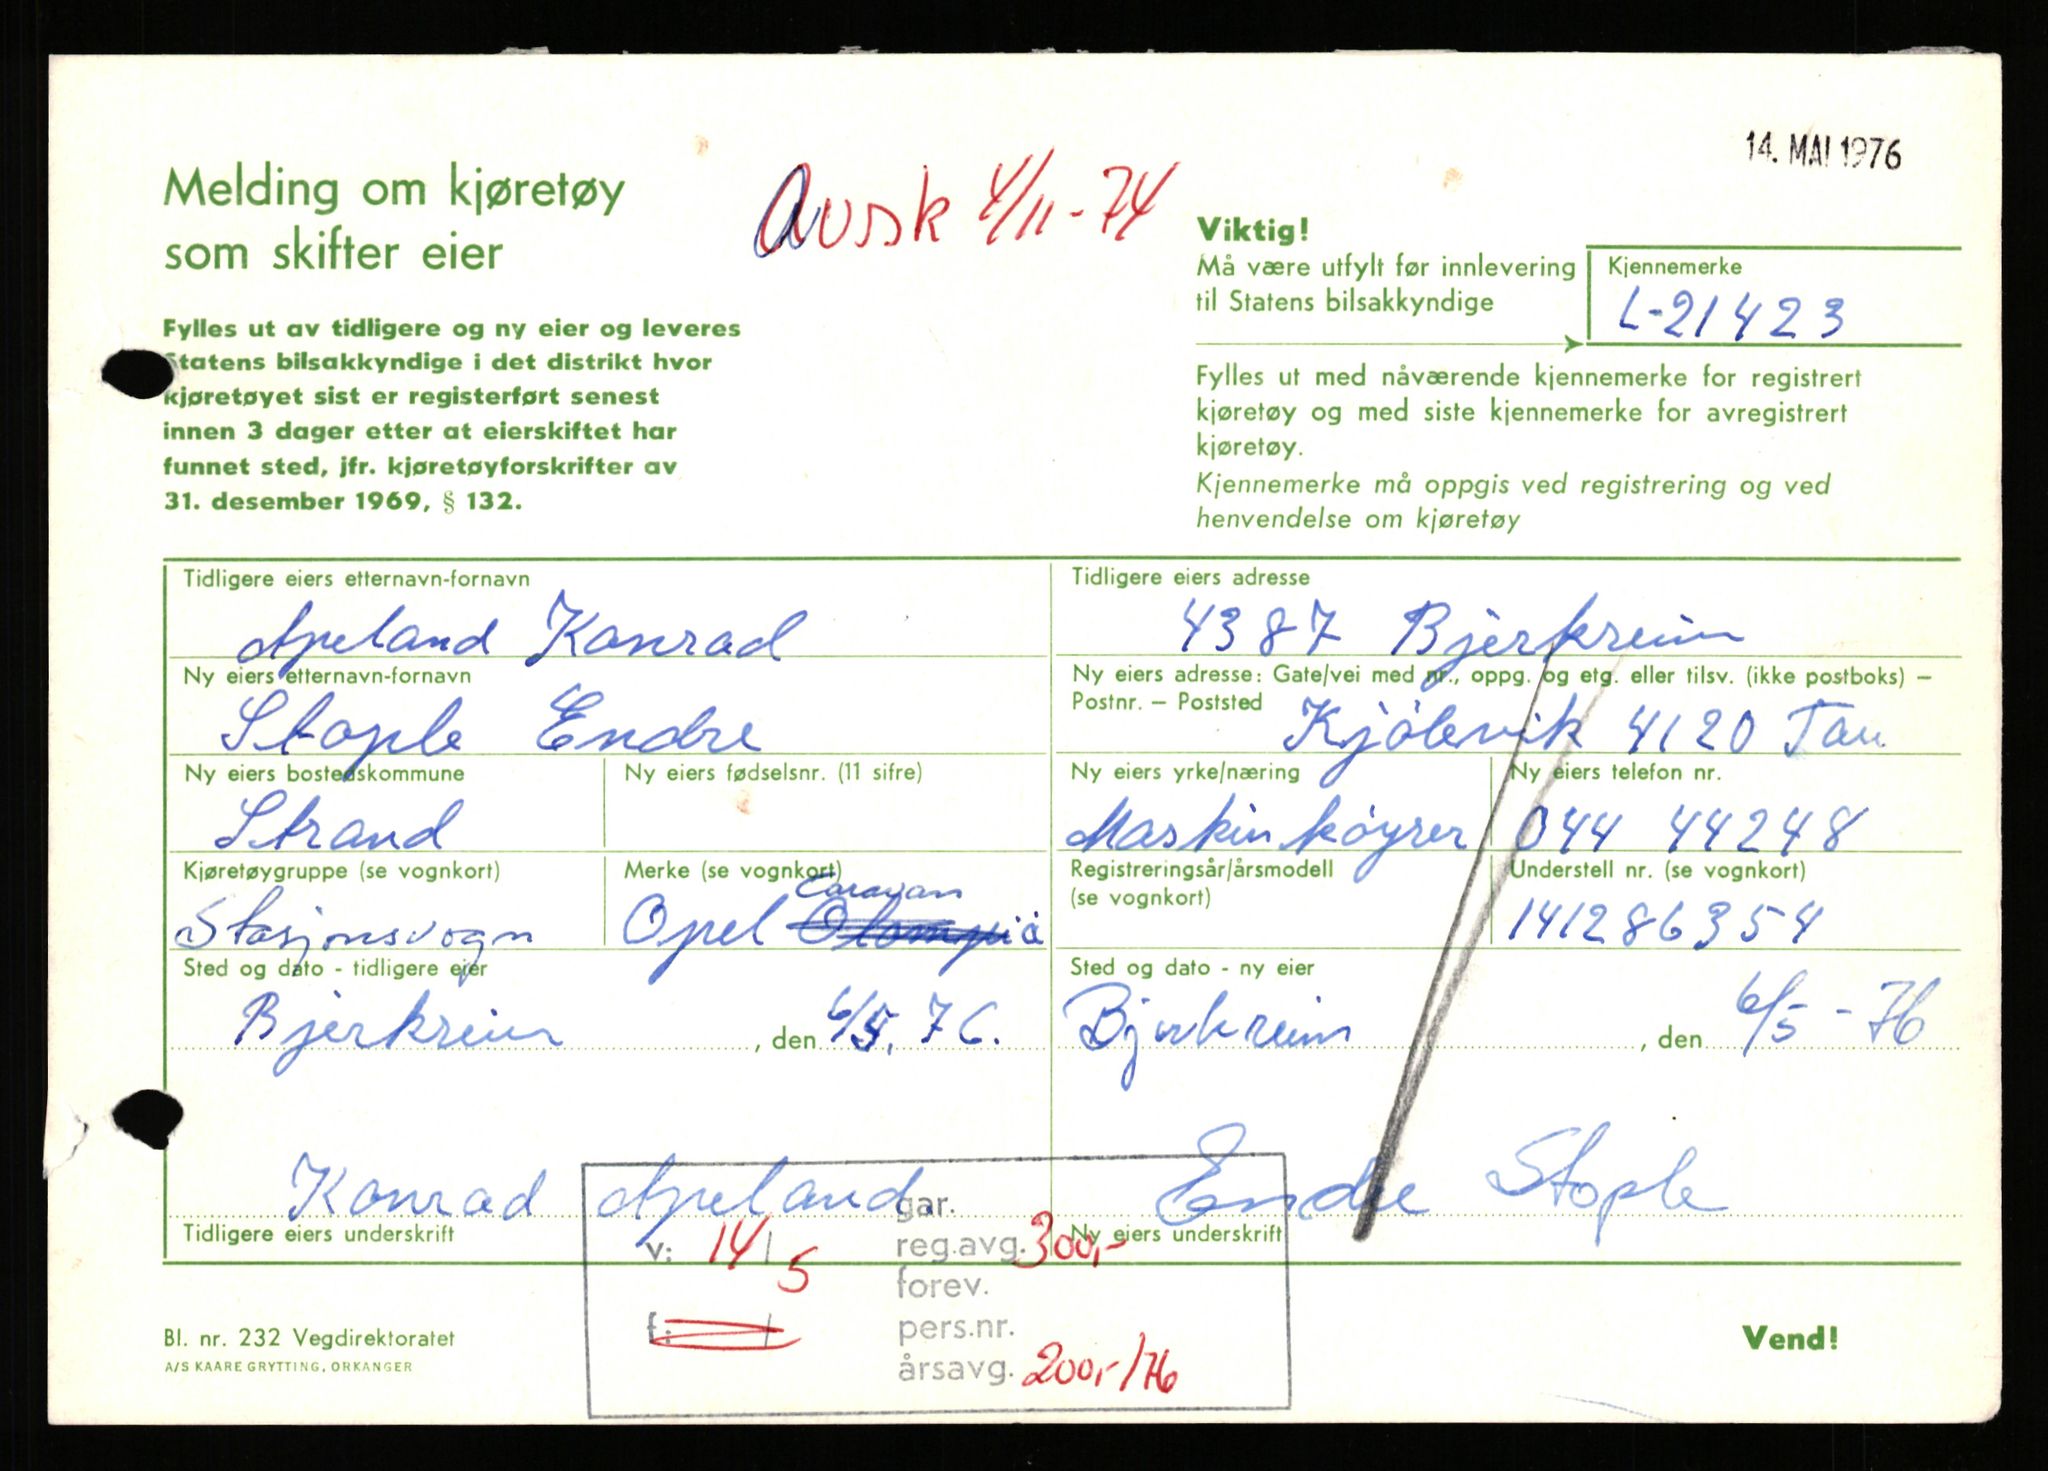 14. MAI 1976
Melding om kjøretøy
som skifter eier
Avsk 4/11-74
Fylles ut av tidligere og ny eier og leveres
Statens bilsakkyndige i det distrikt hvor
kjøretøyet sist er registerført senest
innen 3 dager etter at eierskiftet har
funnet sted, jfr. kjøretøyforskrifter av
31. desember 1969, § 132.
Viktig!
Må være utfylt før innlevering
til Statens bilsakkyndige
Kjennemerke
L-21423
Fylles ut med nåværende kjennemerke for registrert
kjøretøy og med siste kjennemerke for avregistrert
kjøretøy.
Kjennemerke må oppgis ved registrering og ved
henvendelse om kjøretøy
Tidligere eiers etternavn-fornavn
Apeland Konrad
Tidligere eiers adresse
4387 Bjerkreim
Ny eiers etternavn-fornavn
Stople Endre
Ny eiers adresse: Gate/vei med nr., oppg. og etg. eller tilsv. (ikke postboks) –
Postnr. – Poststed
Kjölevik 4120 Tau
Ny eiers bostedskommune
Strand
Ny eiers fødselsnr. (11 sifre)
Ny eiers yrke/næring
Maskinkøyrer
Ny eiers telefon nr.
044 44248
Kjøretøygruppe (se vognkort)
Stasjonsvogn
Merke (se vognkort)
Caravan
Opel Olompia
Registreringsår/årsmodell
(se vognkort)
Understell nr. (se vognkort)
141286354
Sted og dato - tidligere eier
Bjerkreim, den 6/5. 76.
Sted og dato - ny eier
Bjerkreim, den 6/5-76
Konrad Apeland
Tidligere eiers underskrift
Endre Stople
Ny eiers underskrift
v: 14/5
f: /
gar.
reg.avg. 300,-
forev.
pers.nr.
årsavg. 200,-/76
Bl. nr. 232 Vegdirektoratet
A/S KAARE GRYTTING, ORKANGER
Vend!